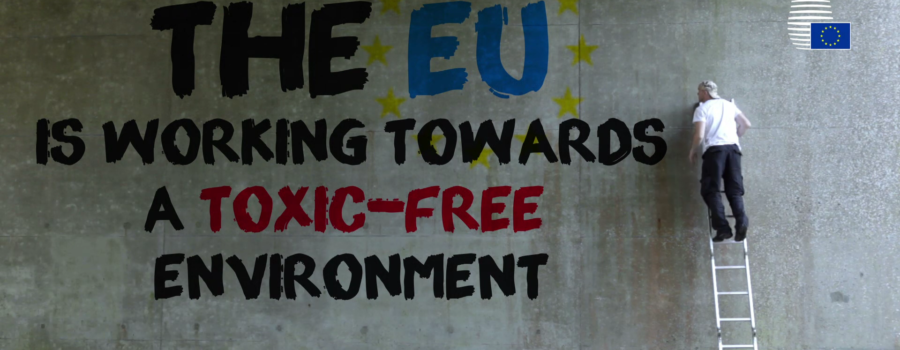 THE EU
IS WORKING TOWARDS
A TOXIC-FREE
ENVIRONMENT